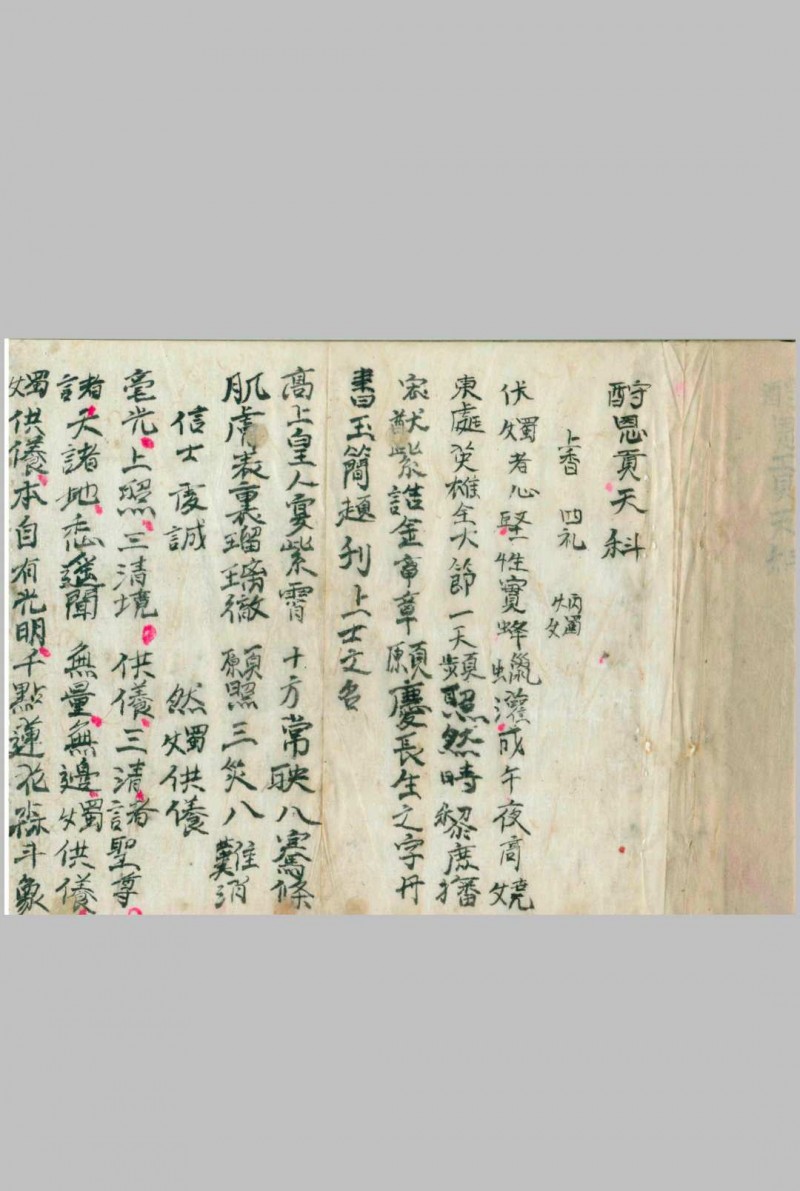 酧恩貢天科
上香 四礼 炳燭
伏燭者心堅性實蜂蠟灌成午夜高燒
東處英雄全大節一天頻照然時黎庶播
猷紫誥金章章願慶長生之字丹
書玉簡題刊上士之名
高上皇人宴紫霄 十方常映八騫條
肌膚表裏瑠璃徹 願照三災八難消
信士虔誠 然燭供養
亳光上照三清境供養三清諸聖尊
諸天諸地悉遥聞 無量無邊燭供養
燭供養本自有光明千點蓮花森斗象